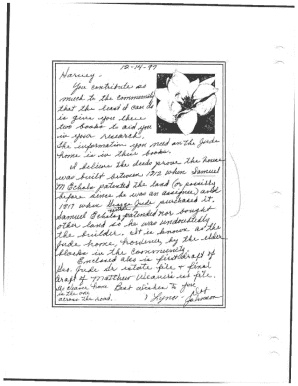 12-14-97
Harvey -
You contribute so
much to the community
that the least I can do
is give you these
two books to aid you
in your research.
The information you need on the Jude
home is in these books.
I believe the deeds prove the house
was built between 1812 when Samuel
M Echols patented the land (or possibly
before since he was an assignee) and
1817 when George Jude purchased it.
Samuel Echols patented nor bought
other land so he was undoubtedly
the builder. It is known as the
Jude home, however, by the older
blacks in the community.
Enclosed also is first draft of
Geo. Jude Sr. estate file & final
draft of Matthew
file.
Best wishes to you
in the one
across the road.
Lynn
Johnson